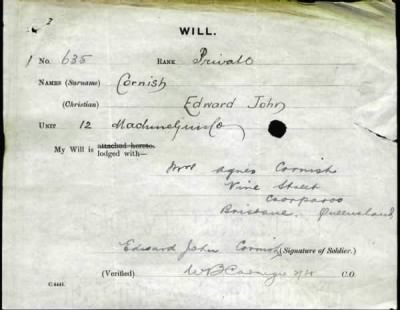 2
WILL.
1 No. 635 RANK Private
NAMES (Surname) Cornish
(Christian) Edward John
UNIT 12 Machine Gun Co
My Will is attached hereto.
lodged with—
Mrs Agnes Cornish
Vine Street
Coorparoo
Brisbane, Queensland
Edward John Cornish (Signature of Soldier.)
(Verified) C.O.